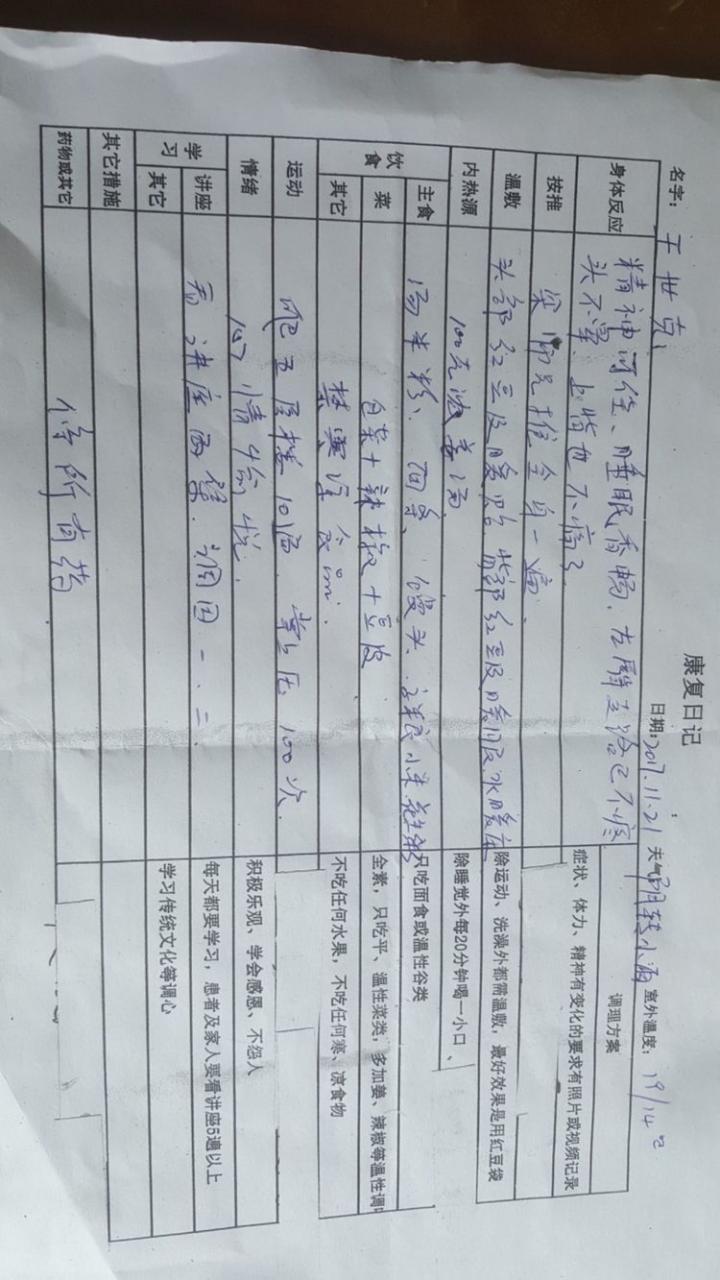 康复日记
名字：王世克 日期：2017.11.21 天气 阴转小雨 室外温度：19/14℃
身体反应 精神可佳、睡眠香畅、左肩
头不晕、上背也不痛了
调理方案
症状、体力、精神有变化的要求有照片或视频记录
按推 梁师兄推全身一遍、
温敷 头部红豆皮暖贴 背部红豆皮暖
除运动、洗澡外都需温敷，最好效果是用红豆袋
内热源 100℃浓姜汤
除睡觉外每20分钟喝一小口、
饮食 主食 汤米粉、面条、馒头、小米
只吃面食或温性谷类
菜 白菜+辣椒+豆皮
全素，只吃平、温性菜类，多加姜、辣椒等温性调
其它 禁寒凉食品．
不吃任何水果，不吃任何寒、凉食物
运动 爬五层楼10遍 100次
情绪 心情愉悦．
积极乐观、学会感恩、不怨人
学习 讲座 看讲座两集．一．二
每天都要学习，患者及家人要看讲座5遍以上
其它
学习传统文化等调心
其它措施
药物或其它 停所有药